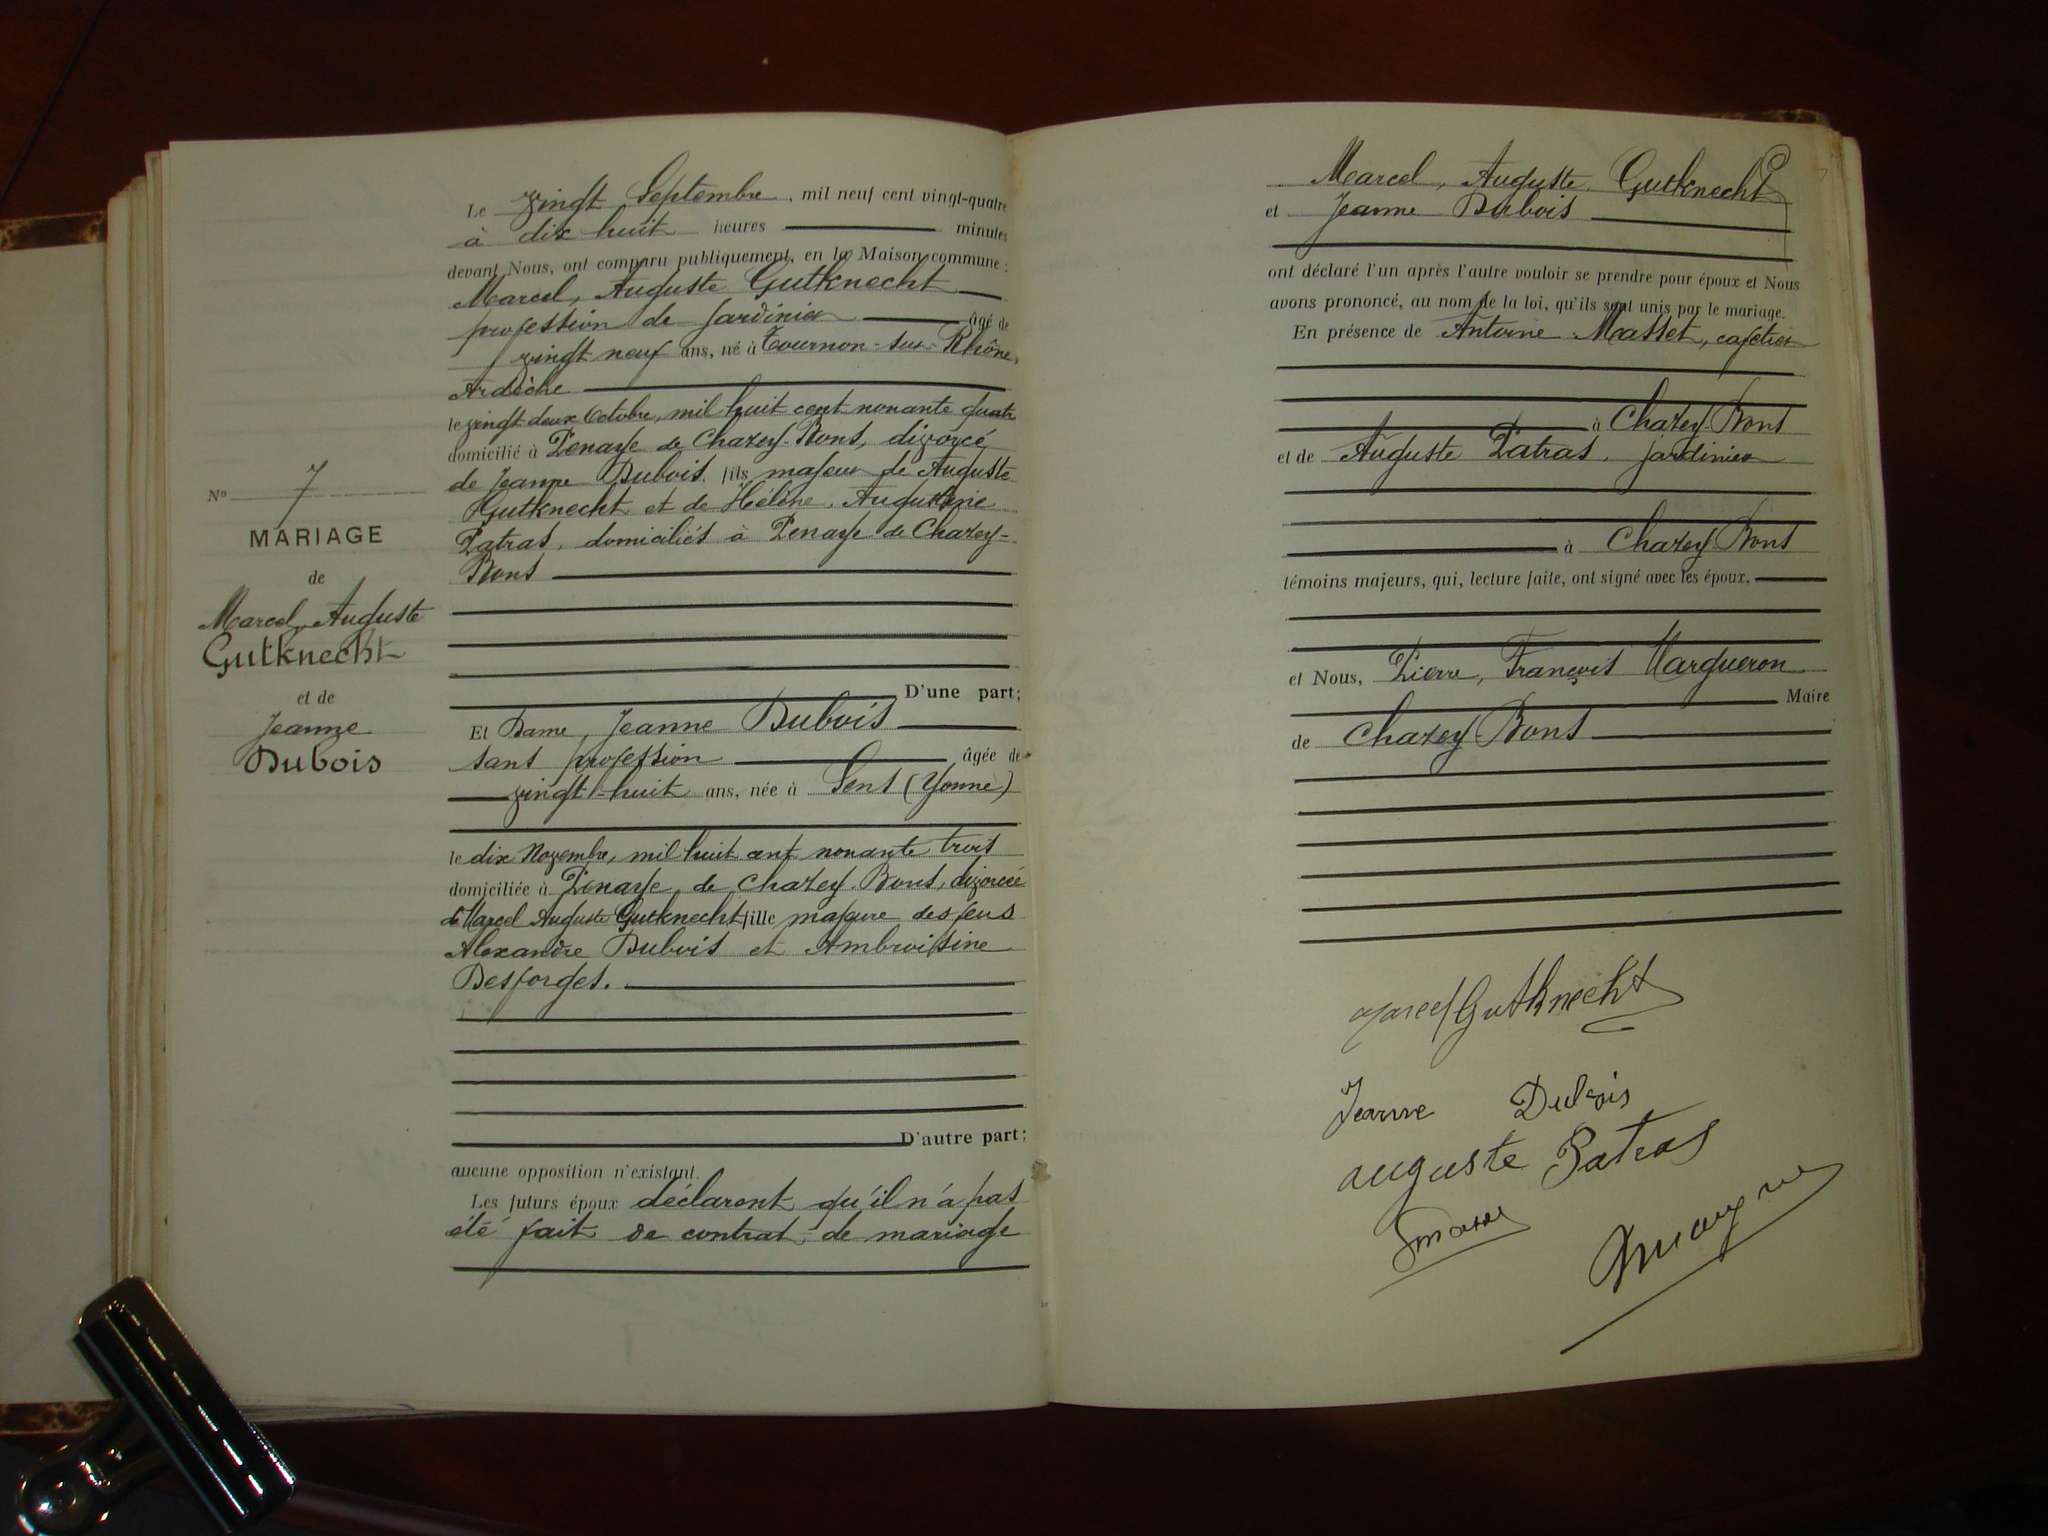 Le vingt Septembre, mil neuf cent vingt-quatre
à dix huit heures minutes
devant Nous, ont comparu publiquement, en la Maison commune :
Marcel, Auguste Gutknecht
profession de Jardinier âgé de
vingt neuf ans, né à Tournon-sur-Rhône,
Ardèche
le vingt deux Octobre, mil huit cent nonante quatre
domicilié à Penaye de Chazey-Bons, divorcé
de Jeanne Dubois, fils majeur de Auguste
Gutknecht et de Hélène, Augustine
Patras, domiciliés à Penaye de Chazey-
Bons
D'une part;
Et Dame, Jeanne Dubois
sans profession âgée de
vingt-huit ans, née à Sens (Yonne)
le dix Novembre, mil huit cent nonante trois
domiciliée à Penaye, de Chazey-Bons, divorcée
de Marcel Auguste Gutknecht, fille majeure des feus
Alexandre Dubois et Ambroisine
Desforges.
D'autre part;
aucune opposition n'existant.
Les futurs époux déclarent qu'il n'a pas
été fait de contrat de mariage
No 7
MARIAGE
de
Marcel, Auguste
Gutknecht
et de
Jeanne
Dubois
Marcel, Auguste, Gutknecht
et Jeanne Dubois
ont déclaré l'un après l'autre vouloir se prendre pour époux et Nous
avons prononcé, au nom de la loi, qu'ils sont unis par le mariage.
En présence de Antoine Masset, cafetier
à Chazey-Bons
et de Auguste Patras, jardinier
à Chazey-Bons
témoins majeurs, qui, lecture faite, ont signé avec les époux,
et Nous, Pierre, François Margueron
Maire
de Chazey-Bons
Marcel Gutknecht
Jeanne Dubois
auguste Patras